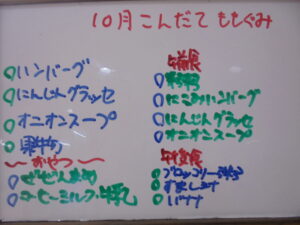 10月こんだて ももぐみ
ハンバーグ
にんじんグラッセ
オニオンスープ
〜おやつ〜
コーヒーミルク・牛乳
午前食
にこみハンバーグ
にんじんグラッセ
オニオンスープ
午後食
ブロッコリー
バナナ